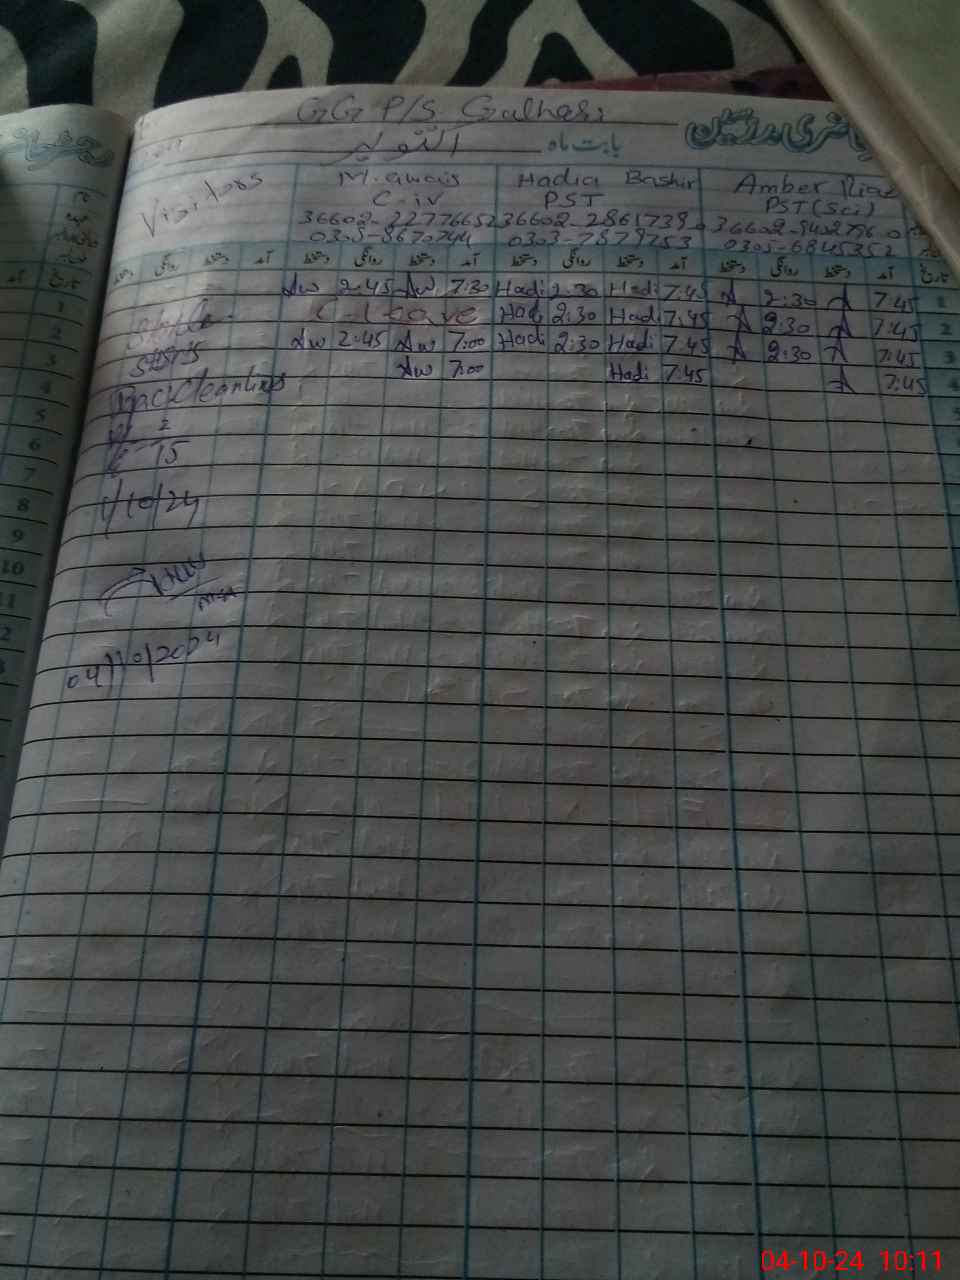 GG P/S Galhari
بابت ماہ اکتوبر
حاضری مدرسین
Visitors
M. awais
C-iv
36602-2277665
0305-8670744
Hadia Bashir
PST
36602-2861739
0303-7879753
Amber Riaz
PST (Sci)
0305-6845352
دستخط روانگی دستخط آمد دستخط روانگی دستخط آمد دستخط روانگی دستخط آمد دستخط روانگی دستخط آمد تاریخ
Aw 2:45 Aw 7:30 Hadi 2:30 Hadi 7:45 A 2:30 A 7:45 1
C-Leave Hadi 2:30 Hadi 7:45 A 2:30 A 7:45 2
Aw 2:45 Aw 7:00 Hadi 2:30 Hadi 7:45 A 2:30 A 7:45 3
Aw 7:00 Hadi 7:45 A 7:45 4
Cleanlines
2
15
1/10/24
MEA
04/10/2024
آمد تاریخ
1
2
3
4
5
6
7
8
9
10
11
04-10-24 10:11